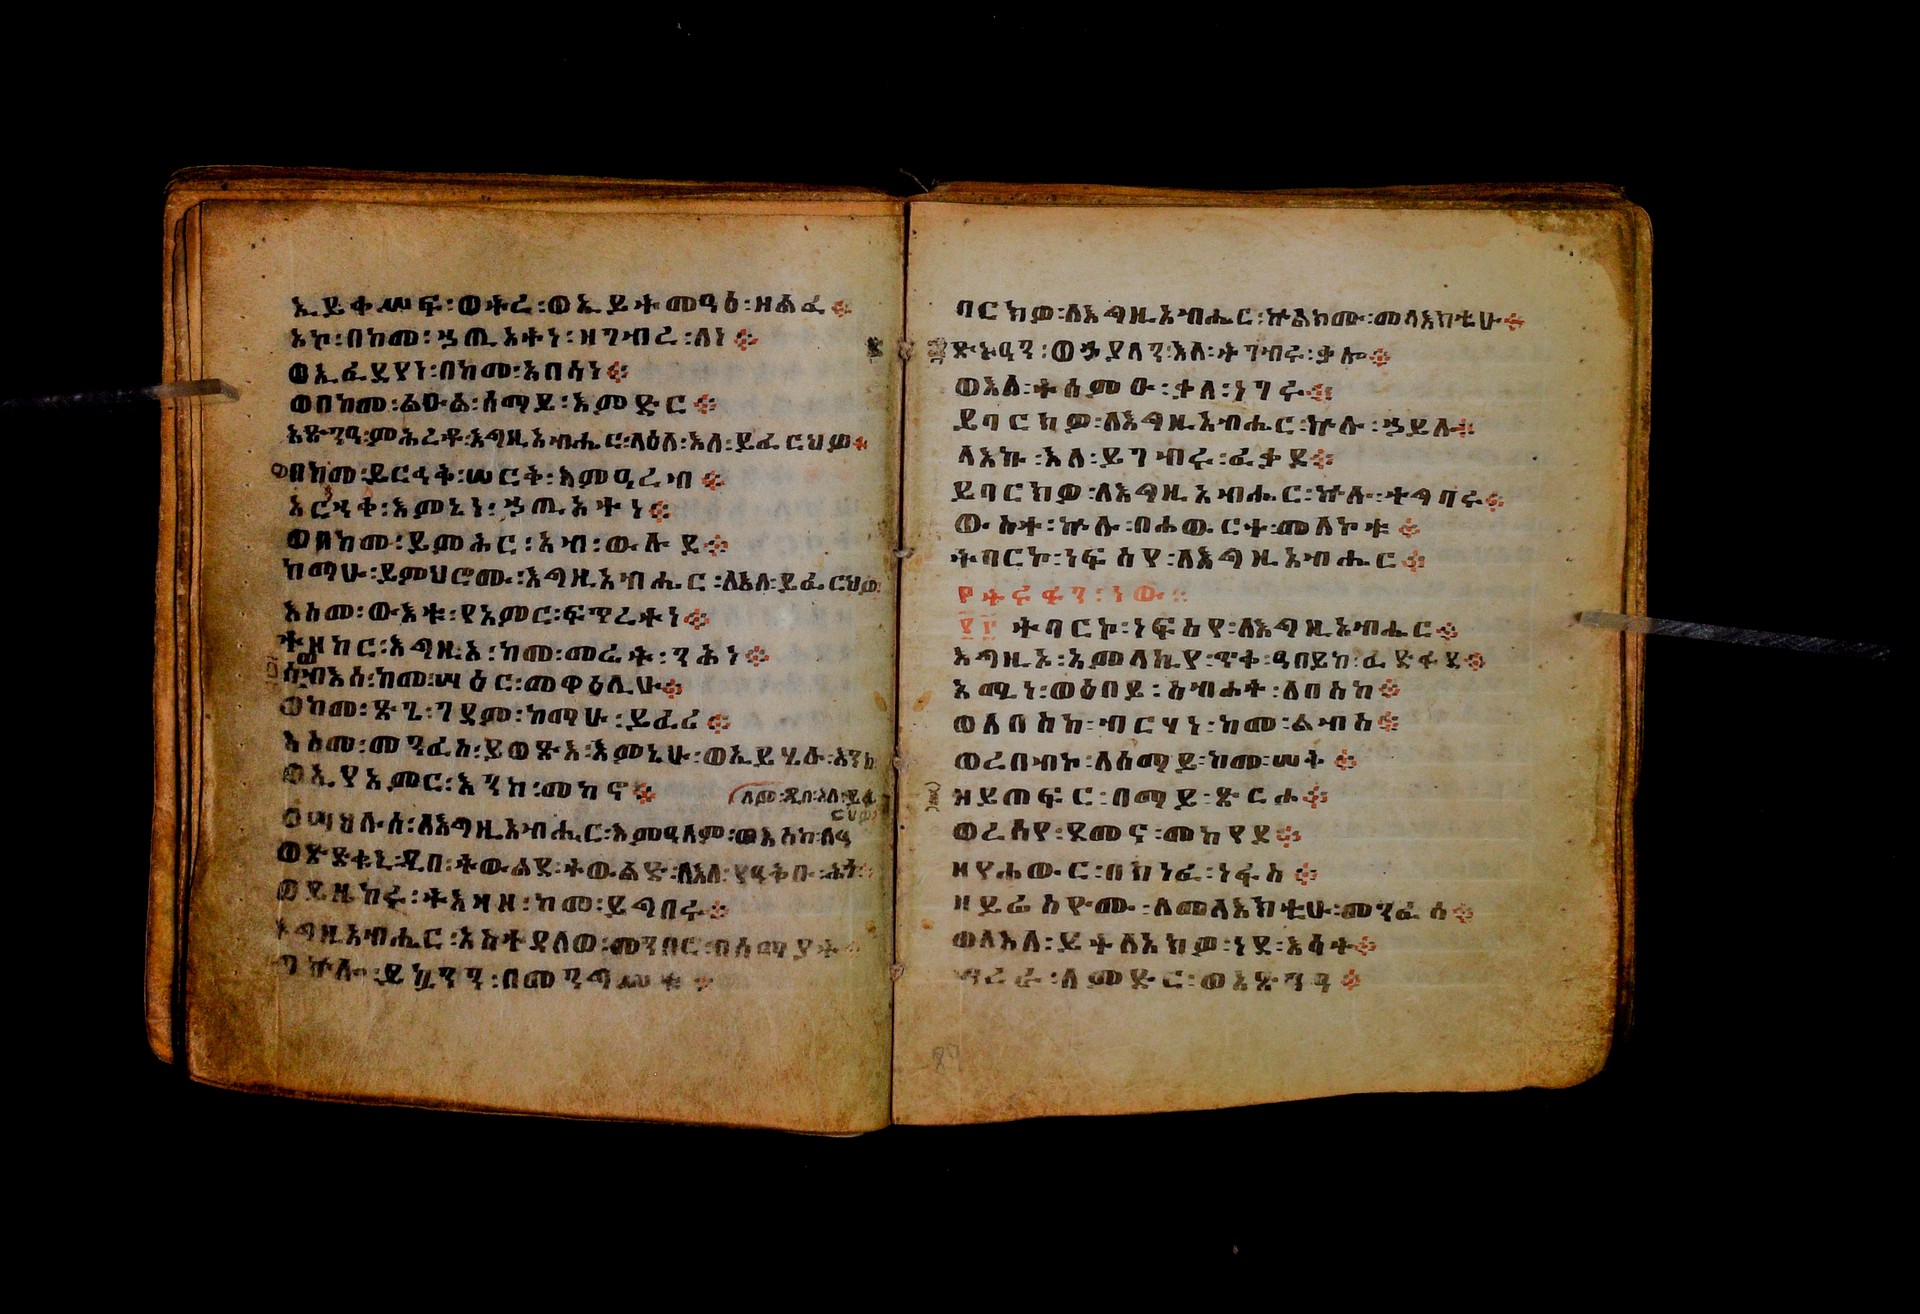 ኢይቀሥፍ፡ወትረ፡ወኢይትመዓዕ፡ዘልፈ፨
አኮ፡በከመ፡ኃጢአትነ፡ዘገብረ፡ለነ፨
ወኢፈደየነ፡በከመ፡አበሳነ፨
ወበከመ፡ልዑል፡ሰማይ፡እምድር፨
አጽንዓ፡ምሕረቶ፡እግዚአብሔር፡ላዕለ፡እለ፡ይፈርህዎ፨
ወበከመ፡ይርኅቅ፡ሠርቅ፡እምዓረብ፨
አርኀቀ፡እምኔነ፡ኃጢአትነ፨
ወበከመ፡ይምሕር፡አብ፡ውሉደ፨
ከማሁ፡ይምህሮሙ፡እግዚአብሔር፡ለእለ፡ይፈርህዎ
እስመ፡ውእቱ፡የአምር፡ፍጥረትነ፨
ተዘከር፡እግዚኦ፡ከመ፡መሬት፡ንሕነ፨
ሰብእሰ፡ከመ፡ሣዕር፡መዋዕሊሁ፨
ወከመ፡ጽጌ፡ገዳም፡ከማሁ፡ይፈሪ፨
እስመ፡መንፈስ፡ይወጽእ፡እምኔሁ፡ወኢይሄሉ፡እንከ
ወኢየአምር፡እንከ፡መካኖ፨
ለም፡ዲበ፡እለ፡ይፈ
ርህዎ
ወሣህሉሰ፡ለእግዚአብሔር፡እምዓለም፡ወእስከ፡ለዓ
ወጽድቁኒ፡ዲበ፡ትውልደ፡ትውልድ፡ለእለ፡የዓቅቡ፡ሕጎ፡
ወይዜከሩ፡ትእዛዘ፡ከመ፡ይግበሩ፨
እግዚአብሔር፡አስተዳለወ፡መንበሮ፡በሰማያት፨
ወኵሎ፡ይኴንን፡በመንግሥቱ፨
ባርክዎ፡ለእግዚአብሔር፡ኵልክሙ፡መላእክቲሁ፨
ጽኑዓን፡ወኃያላን፡እለ፡ትገብሩ፡ቃሎ፨
ወእለ፡ትሰምዑ፡ቃለ፡ነገሩ፨
ይባርክዎ፡ለእግዚአብሔር፡ኵሉ፡ኃይሉ፨
ላእኩ፡እለ፡ይገብሩ፡ፈቃዶ፨
ይባርክዎ፡ለእግዚአብሔር፡ኵሉ፡ተግባሩ፨
ውስተ፡ኵሉ፡በሐውርተ፡መለኮቱ፨
ትባርኮ፡ነፍስየ፡ለእግዚአብሔር፨
ትባርኮ፡ነፍስየ፡ለእግዚአብሔር፨
እግዚኦ፡አምላኪየ፡ጥቀ፡ዓበይከ፡ፈድፋደ፨
አሚነ፡ወዕበየ፡ስብሐት፡ለበስከ፨
ወለበስከ፡ብርሃነ፡ከመ፡ልብስ፨
ወረበብኮ፡ለሰማይ፡ከመ፡ሠቅ፨
ዘይጠፍር፡በማይ፡ጽርሐ፨
ወረሰየ፡ደመና፡መከየደ፨
ዘየሐውር፡በክነፈ፡ነፋስ፨
ዘይሬስዮሙ፡ለመላእክቲሁ፡መንፈሰ፨
ወለእለ፡ይትለአክዎ፡ነደ፡እሳት፨
ሣረራ፡ለምድር፡ወአጽንዓ፨